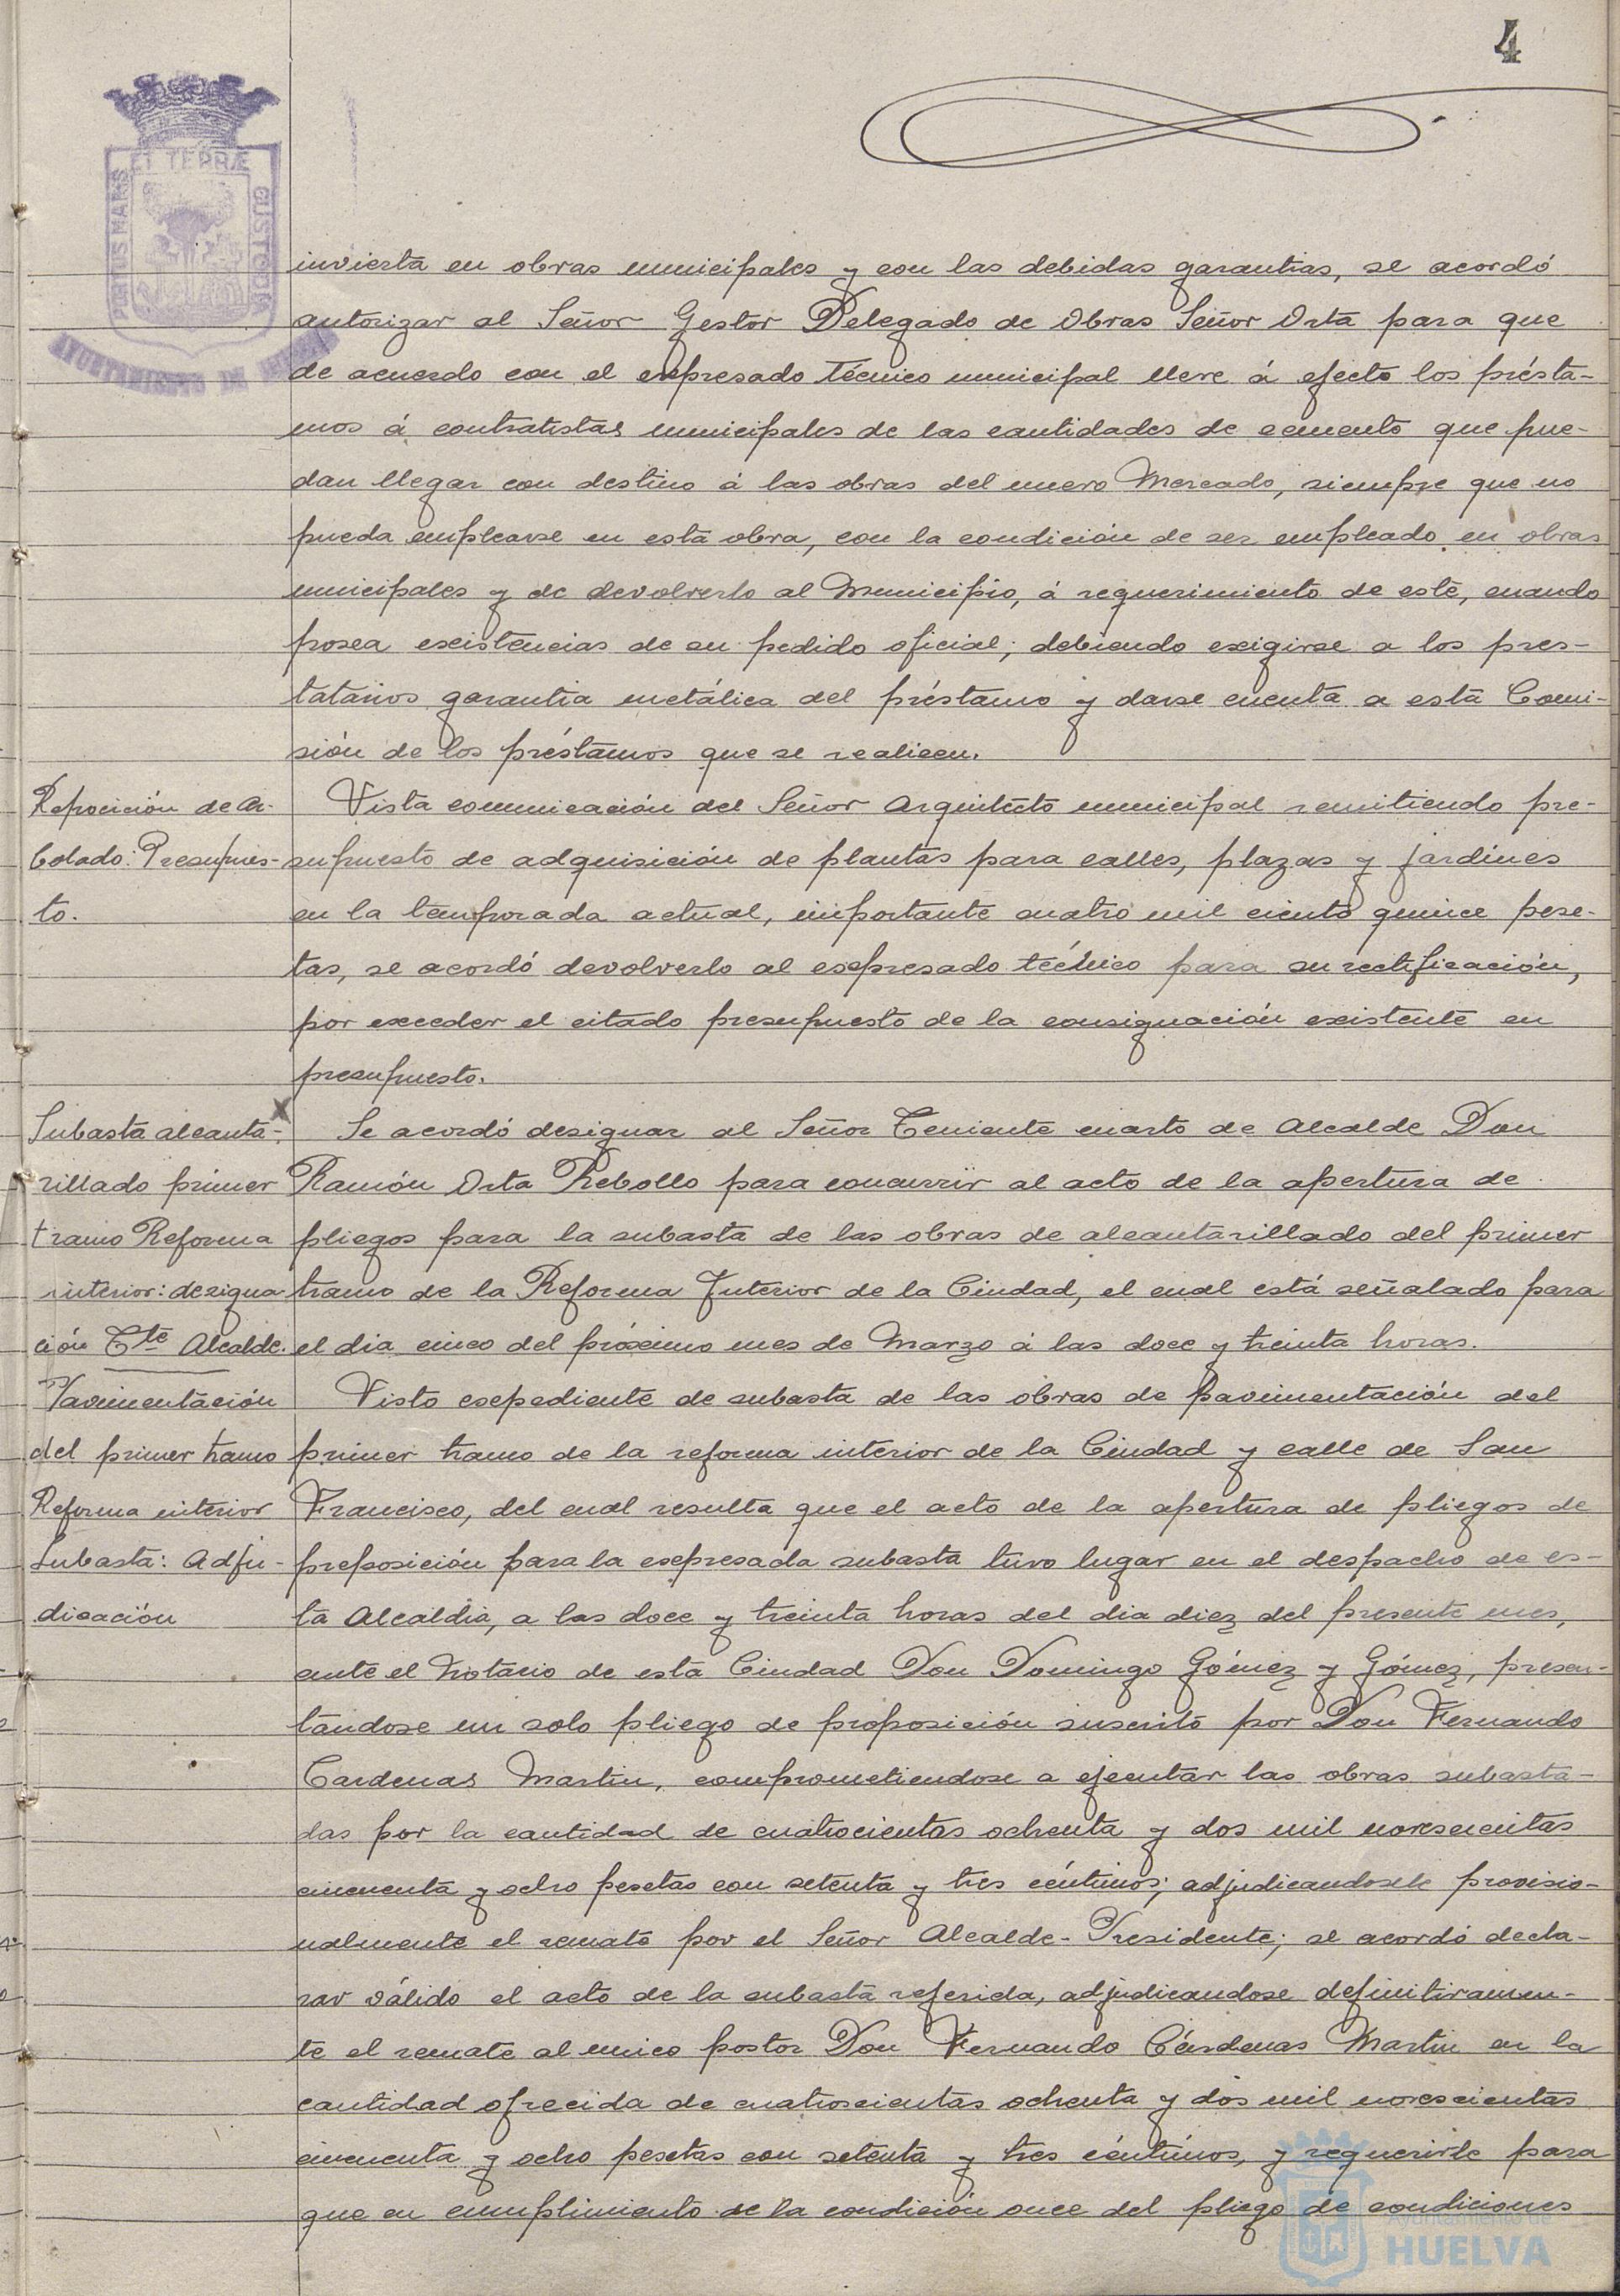 4
PORTUS MARIS ET TERRÆ CUSTODIA
AYUNTAMIENTO DE HUELVA
invierta en obras municipales y con las debidas garantias, se acordó
autorizar al Señor Gestor Delegado de Obras Señor Orta para que
de acuerdo con el expresado técnico municipal lleve á efecto los présta-
mos á contratistas municipales de las cantidades de cemento que pue-
dan llegar con destino á las obras del nuevo Mercado, siempre que no
pueda emplearse en esta obra, con la condición de ser empleado en obras
municipales y de devolverlo al Municipio, á requerimiento de este, cuando
posea existencias de su pedido oficial; debiendo exigirse a los pres-
tatarios garantia metálica del préstamo y darse cuenta a esta Comi-
sión de los préstamos que se realicen.
Reposición de Ar-
bolado: Presupues-
to.
Vista comunicación del Señor Arquitecto municipal remitiendo pre-
supuesto de adquisición de plantas para calles, plazas y jardines
en la temporada actual, importante cuatro mil ciento quince pese-
tas, se acordó devolverlo al expresado técnico para su rectificación,
por exceder el citado presupuesto de la consignación existente en
presupuesto.
Subasta alcanta-
rillado primer
tramo Reforma
interior: designa
ción Tte Alcalde.
Se acordó designar al Señor Teniente cuarto de Alcalde Don
Ramón Orta Rebollo para concurrir al acto de la apertura de
pliegos para la subasta de las obras de alcantarillado del primer
tramo de la Reforma Interior de la Ciudad, el cual está señalado para
el dia cinco del próximo mes de Marzo á las doce y treinta horas.
Pavimentación
del primer tramo
Reforma interior
Subasta: Adju-
dicación
Visto expediente de subasta de las obras de pavimentación del
primer tramo de la reforma interior de la Ciudad y calle de San
Francisco, del cual resulta que el acto de la apertura de pliegos de
preposición para la expresada subasta tuvo lugar en el despacho de es-
ta Alcaldia, a las doce y treinta horas del dia diez del presente mes,
ante el Notario de esta Ciudad Don Domingo Gómez y Gómez, presen-
tándose un solo pliego de proposición suscrito por Don Fernando
Cardenas Martin, comprometiendose a ejecutar las obras subasta-
das por la cantidad de cuatrocientas ochenta y dos mil novescientas
cincuenta y ocho pesetas con setenta y tres céntimos; adjudicandosele provisio-
nalmente el remate por el Señor Alcalde-Presidente; se acordó decla-
rar válido el acto de la subasta referida, adjudicandose definitivamen-
te el remate al unico postor Don Fernando Cárdenas Martin en la
cantidad ofrecida de cuatroscientas ochenta y dos mil novescientas
cincuenta y ocho pesetas con setenta y tres céntimos, y requerirle para
que en cumplimiento de la condición once del pliego de condiciones
Ayuntamiento de
HUELVA